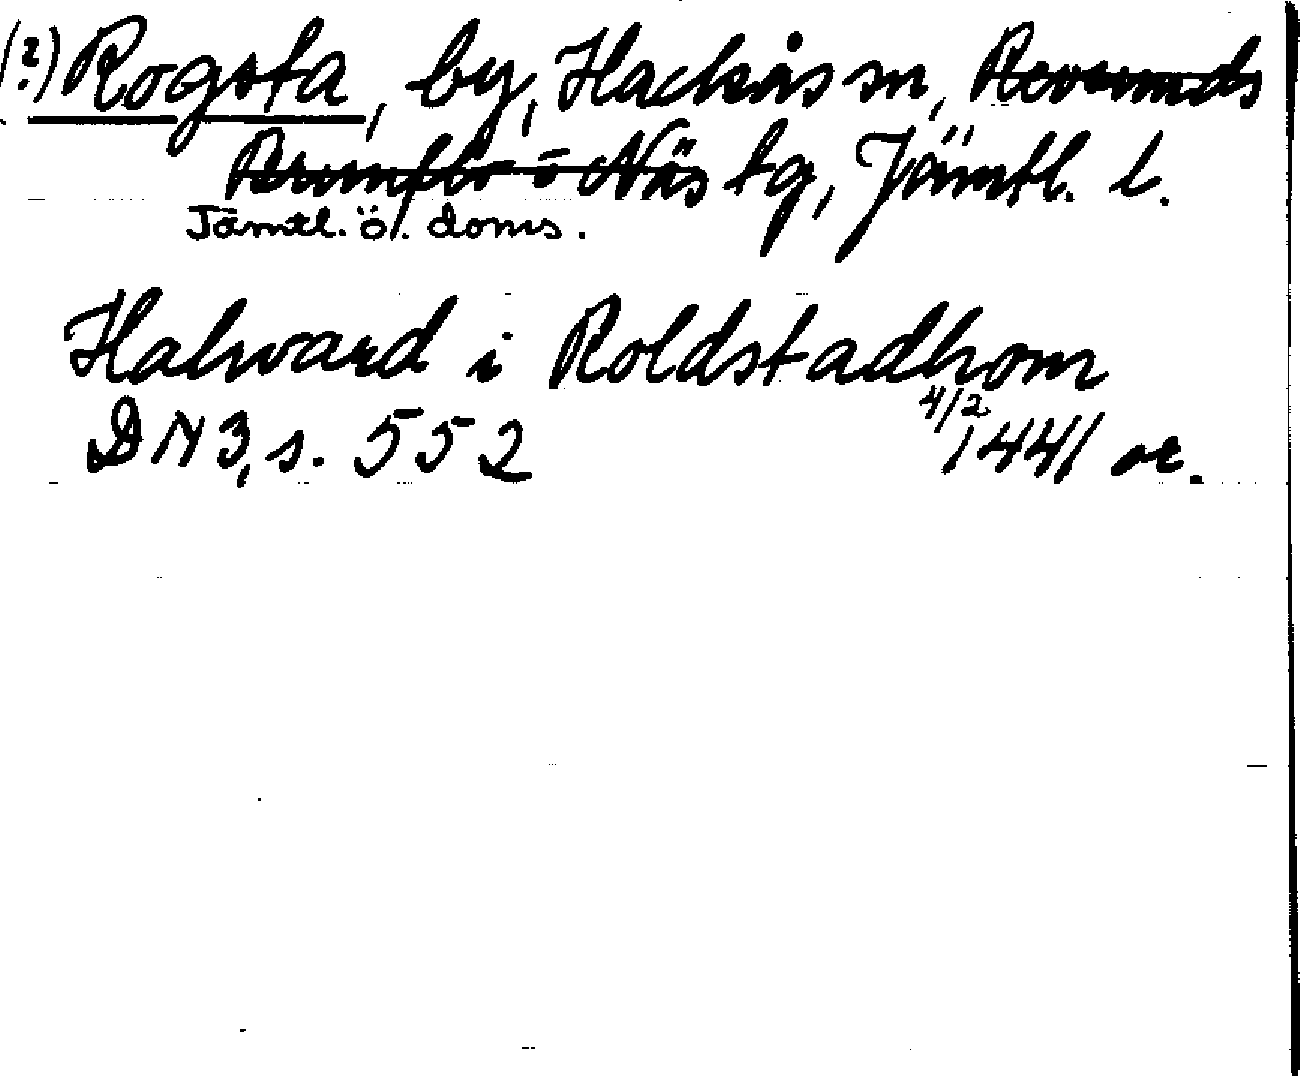 (?) Rogsta, by, Hackås sn, Revsunds
Brunflo o Näs tg, Jämtl. l.
Jämtl. ö/. doms.
Halvard i Roldstadhom
DN 3, s. 552 4/2 1441 or.